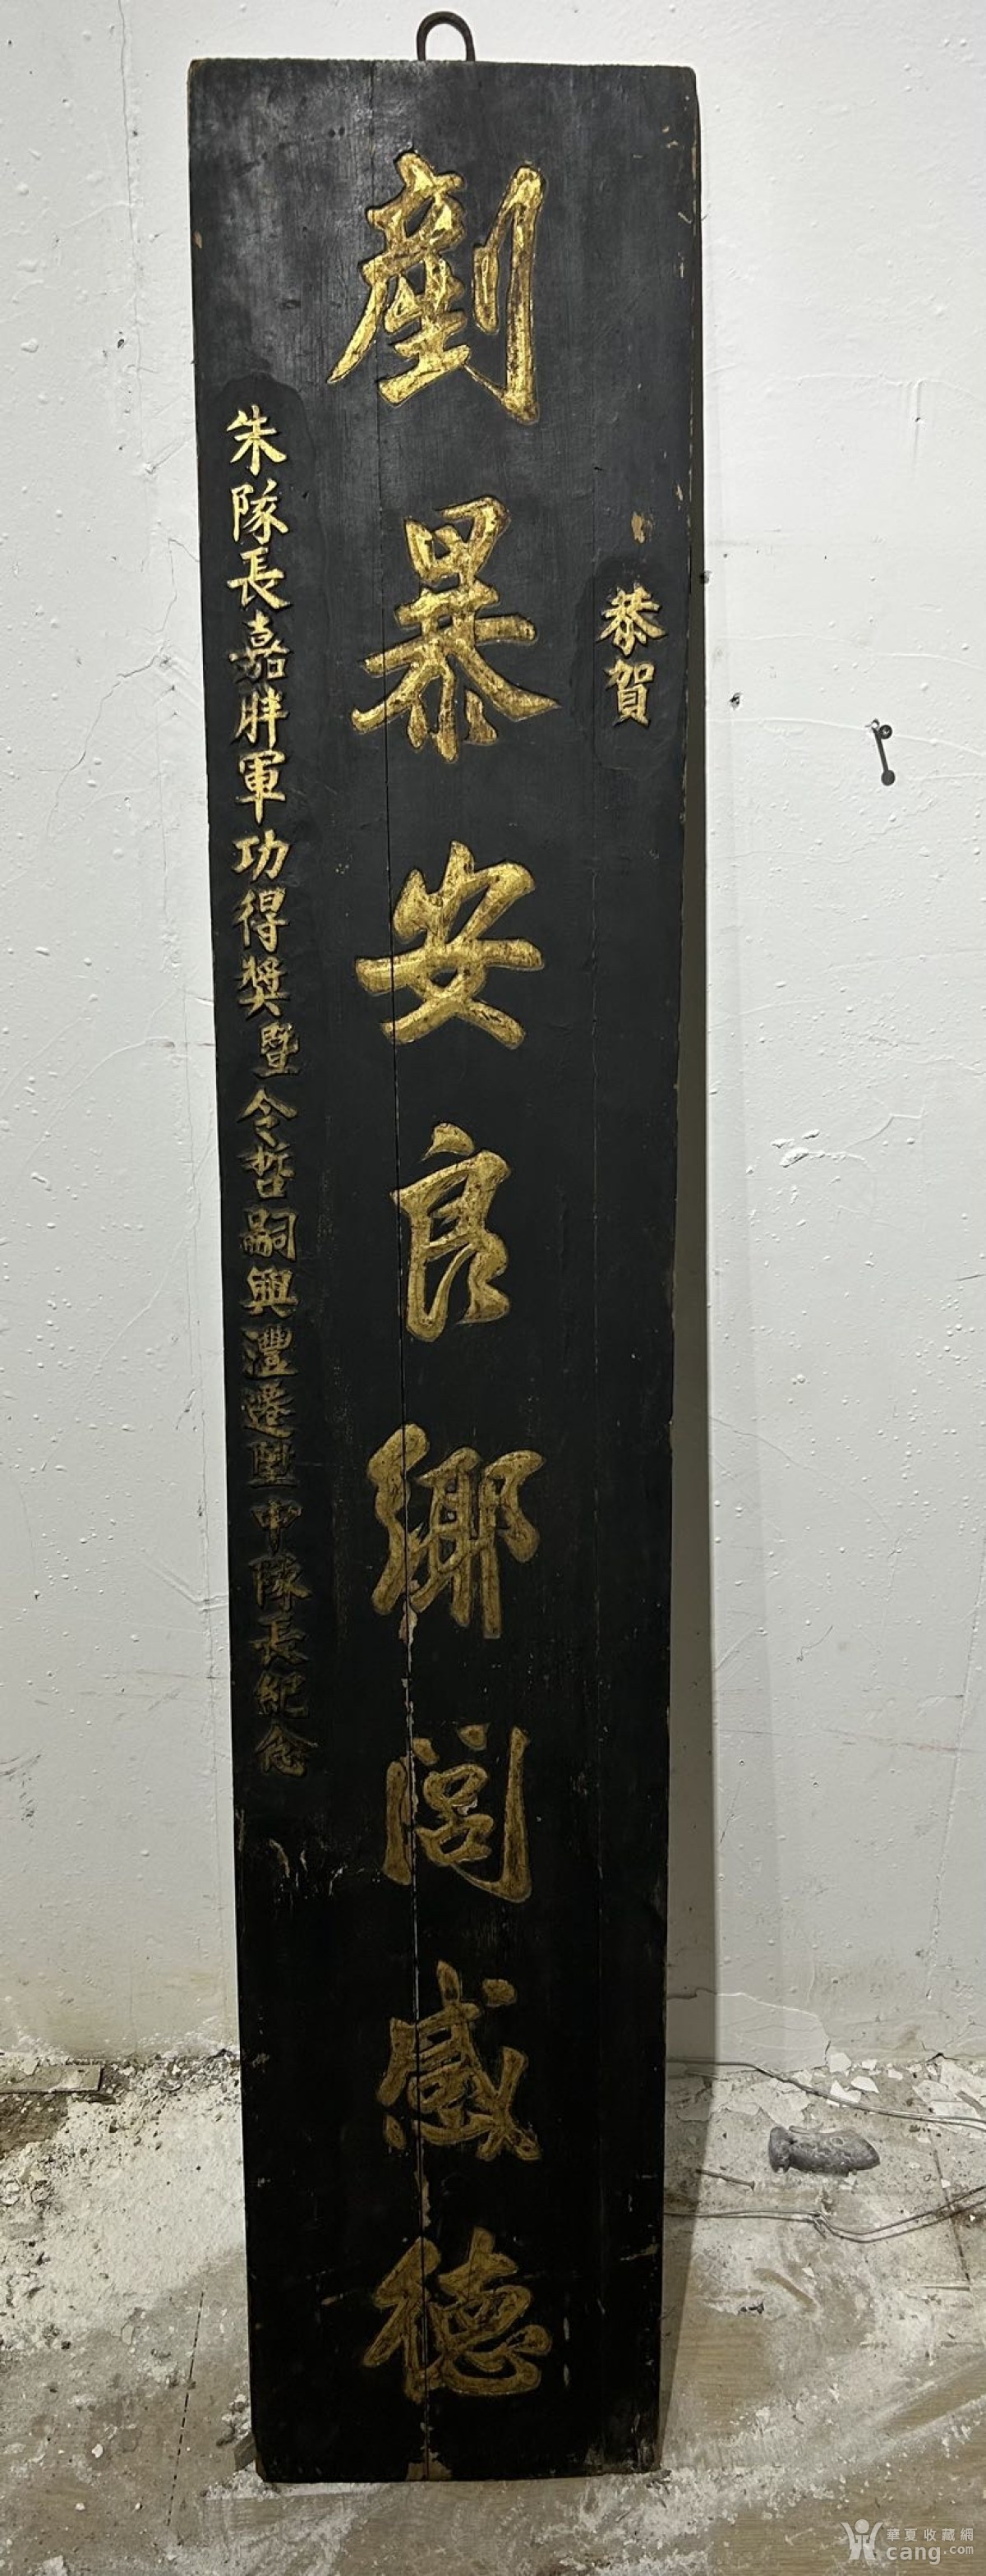 恭賀
剷暴安良鄉閭感德
朱隊長嘉胖軍功得獎暨令哲嗣興灃遷陞中隊長紀念
華夏收藏網
cang.com